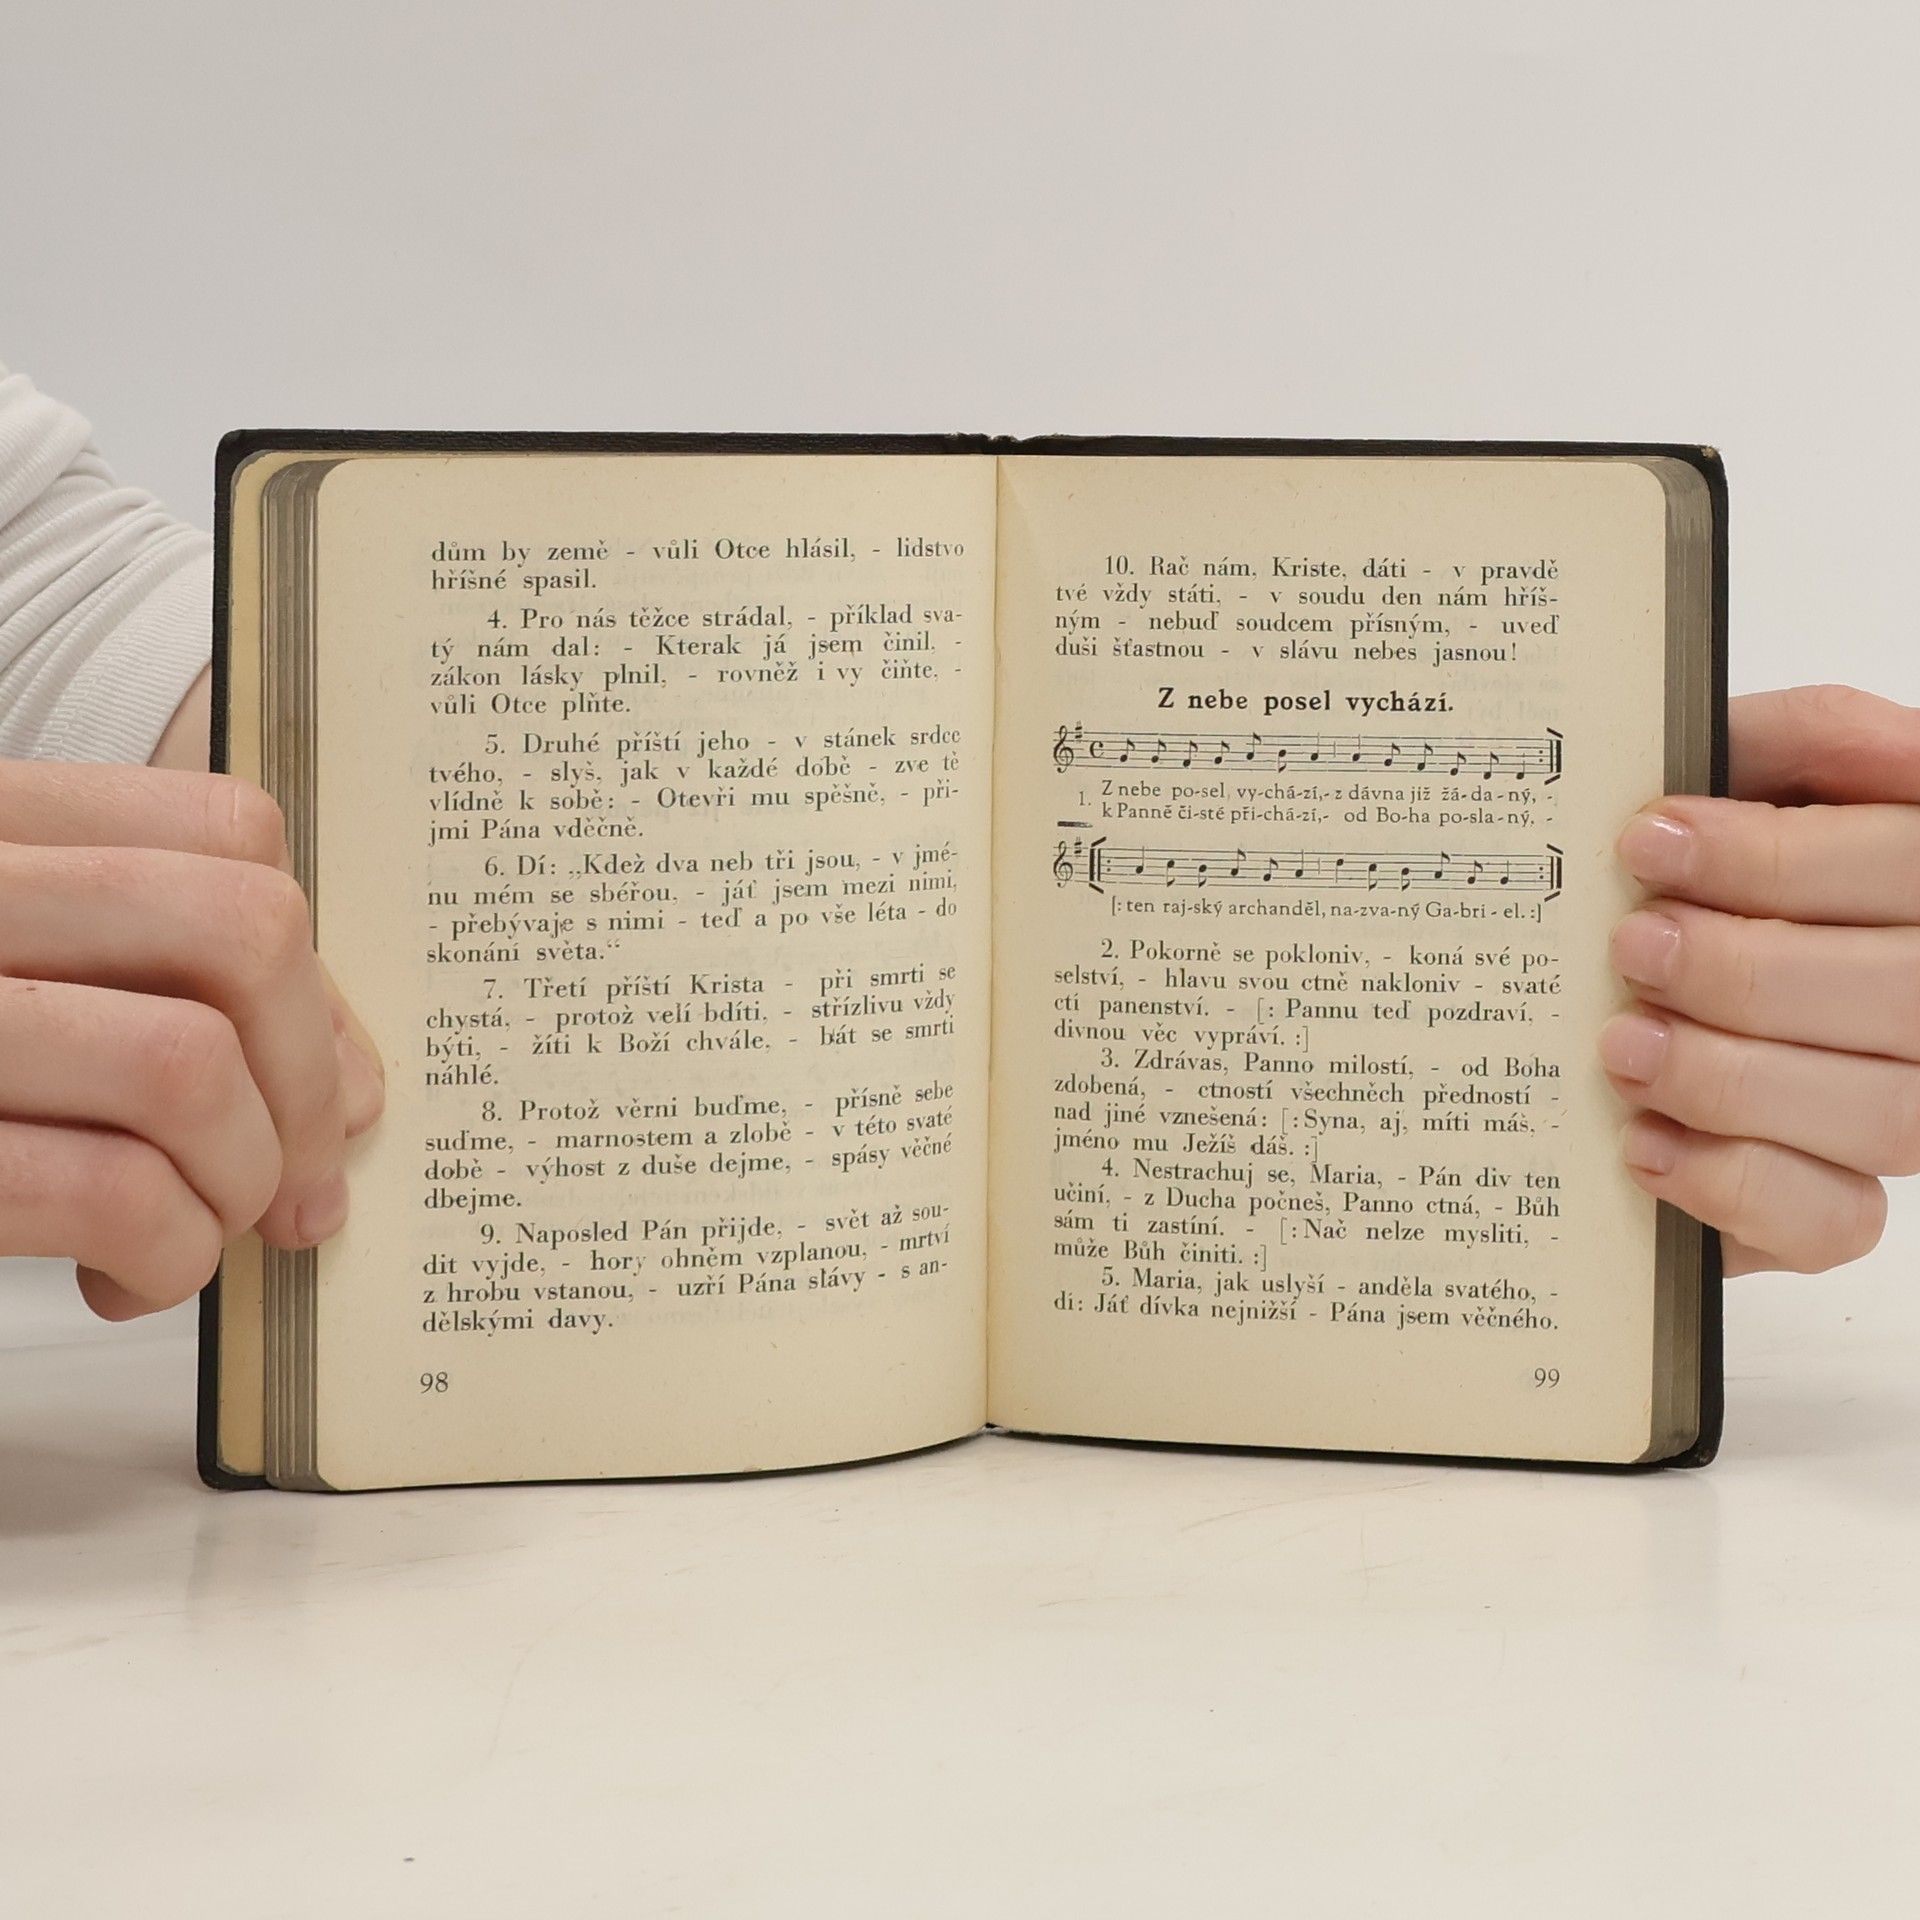 dům by země - vůli Otce hlásil, - lidstvo
hříšné spasil.
4. Pro nás těžce strádal, - příklad sva-
tý nám dal: - Kterak já jsem činil, -
zákon lásky plnil, - rovněž i vy čiňte, -
vůli Otce plňte.
5. Druhé příští jeho - v stánek srdce
tvého, - slyš, jak v každé době - zve tě
vlídně k sobě: - Otevři mu spěšně, - při-
jmi Pána vděčně.
6. Dí: „Kdež dva neb tři jsou, - v jmé-
nu mém se sbéřou, - játʼ jsem mezi nimi,
- přebývaje s nimi - teď a po vše léta - do
skonání světa.“
7. Třetí příští Krista - při smrti se
chystá, - protož velí bdíti, - střízlivu vždy
býti, - žíti k Boží chvále, - bát se smrti
náhlé.
8. Protož věrni buďme, - přísně sebe
suďme, - marnostem a zlobě - v této svaté
době - výhost z duše dejme, - spásy věčné
dbejme.
9. Naposled Pán přijde, - svět až sou-
dit vyjde, - hory ohněm vzplanou, - mrtví
z hrobu vstanou, - uzří Pána slávy - s an-
dělskými davy.
98
10. Rač nám, Kriste, dáti - v pravdě
tvé vždy státi, - v soudu den nám hříš-
ným - nebuď soudcem přísným, - uveď
duši šťastnou - v slávu nebes jasnou!
Z nebe posel vychází.
1. Z nebe po-sel, vy-chá-zí,- z dávna již žá-da-ný, -
k Panně či-sté při-chá-zí,- od Bo-ha po-sla-ný, -
[: ten raj-ský archanděl, na-zva-ný Ga-bri - el. :]
2. Pokorně se pokloniv, - koná své po-
selství, - hlavu svou ctně nakloniv - svaté
ctí panenství. - [: Pannu teď pozdraví, -
divnou věc vypráví. :]
3. Zdrávas, Panno milostí, - od Boha
zdobená, - ctností všechněch předností -
nad jiné vznešená: [: Syna, aj, míti máš, -
jméno mu Ježíš dáš. :]
4. Nestrachuj se, Maria, - Pán div ten
učiní, - z Ducha počneš, Panno ctná, - Bůh
sám ti zastíní. - [: Nač nelze mysliti, -
může Bůh činiti. :]
5. Maria, jak uslyší - anděla svatého, -
dí: Játʼ dívka nejnižší - Pána jsem věčného.
99